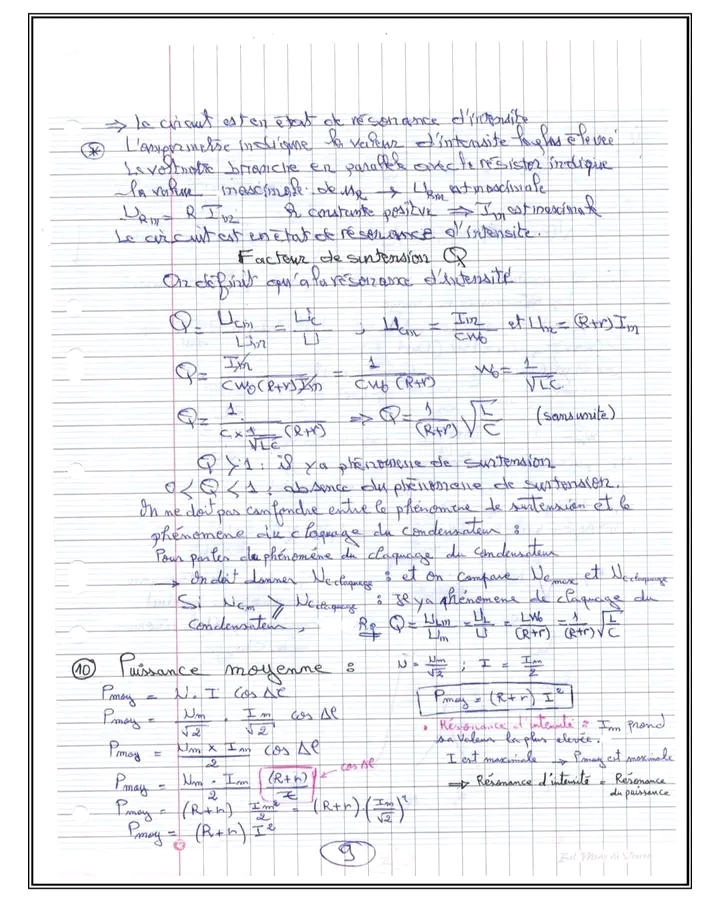 ⇒ Le circuit est en état de résonance d'intensité
* L'ampèrmetre indique la valeur d'intensité la plus élevée
Le voltmetre branche en parallèle avec le résistor indique
la valeur maximale de u_R → U_Rm est maximale
U_Rm = R I_m R constante positive ⇒ I_m est maximale
Le circuit est en état de résonance d'intensité.
Facteur de surtension Q
On définit qu'à la résonance d'intensité
Q = U_cm / U_m = U_c / U ; U_cm = I_m / Cω0 et U_m = (R+r) I_m
Q = I_m / Cω0 (R+r) I_m = 1 / Cω0 (R+r) ω0 = 1 / √LC
Q = 1 / C × 1/√LC (R+r) ⇒ Q = 1/(R+r) √L/C (sans unité)
Q > 1 : il y a phénomene de surtension
0 < Q < 1 : absence du phénomène de surtension.
On ne doit pas confondre entre le phénomène de surtension et le
phénomène du claquage du condensateur :
Pour parler du phénomène du claquage du condensateur
→ on doit donner U_c claquage : et on compare U_c max et U_c claquage
Si U_cm ≥ U_c claquage : Il y a phénomene de claquage du
condensateur, Rq Q = U_Lm / U_m = U_L / U = Lω0 / (R+r) = 1/(R+r) √L/C
10 Puissance moyenne : U = U_m/√2 ; I = I_m/2
P_moy = U . I cos Δφ
P_moy = U_m/√2 . I_m/√2 cos Δφ
P_moy = U_m × I_m / 2 cos Δφ
P_moy = U_m . I_m / 2 (R+r)/Z ← cos Δφ
P_moy = (R+r) I_m²/2 = (R+r) . (I_m/√2)²
P_moy = (R+r) I²
P_moy = (R+r) I²
• Résonance d'intensité : I_m prend
sa valeur la plus élevée.
I est maximale → P_moy est maximale
⇒ Résonance d'intensité = Résonance
de puissance
9